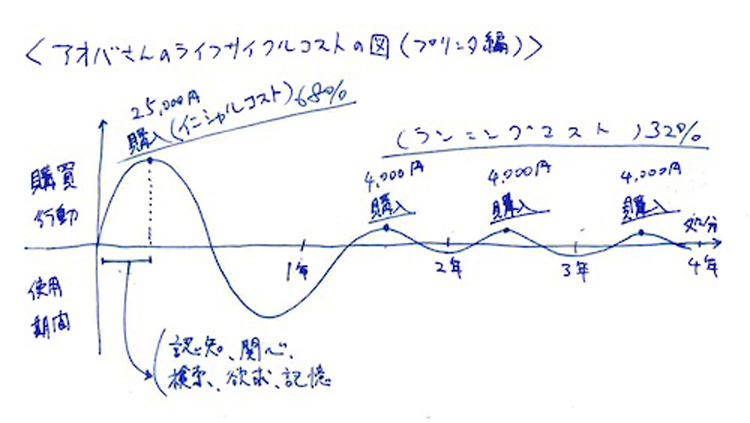 <アオバさんのライフサイクルコストの図(プリンタ編)>
25,000円
購入(イニシャルコスト)68%
(ランニングコスト)32%
4,000円
購入
4,000円
購入
4,000円
購入
購買
行動
使用
期間
処分
1年
2年
3年
4年
認知、関心、
検索、欲求、記憶